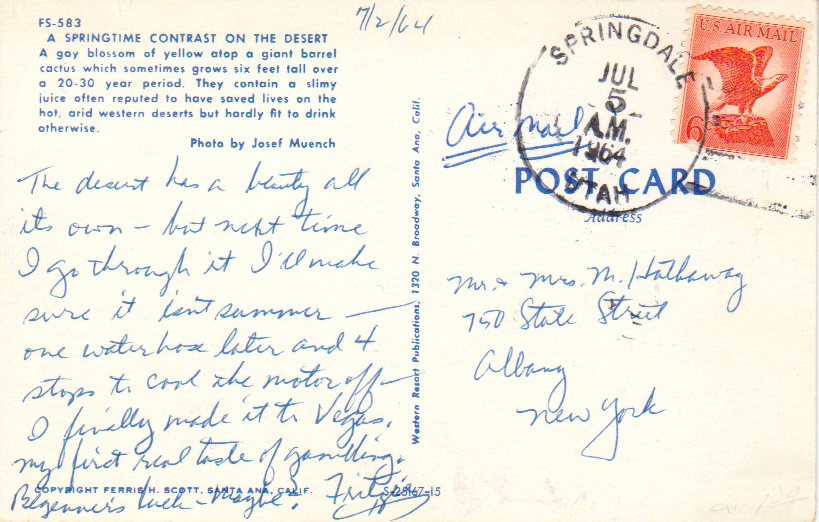 FS-583
A SPRINGTIME CONTRAST ON THE DESERT
A gay blossom of yellow atop a giant barrel
cactus which sometimes grows six feet tall over
a 20-30 year period. They contain a slimy
juice often reputed to have saved lives on the
hot, arid western deserts but hardly fit to drink
otherwise.
Photo by Josef Muench
7/2/64
The desert has a beauty all
its own — but next time
I go through it I'll make
sure it isn't summer —
one waterhose later and 4
stops to cool the motor off —
I finally made it to Vegas.
my first real taste of gambling.
Beginners luck - maybe?
COPYRIGHT FERRIS H. SCOTT, SANTA ANA, CALIF.
S-28167-15
Western Resort Publications, 1320 N. Broadway, Santa Ana, Calif.
SPRINGDALE
JUL
5
A.M.
1964
UTAH
U.S. AIR MAIL
6
Air Mail
POST CARD
Address
Mr. & Mrs. M. Hathaway
750 State Street
Albany
New York